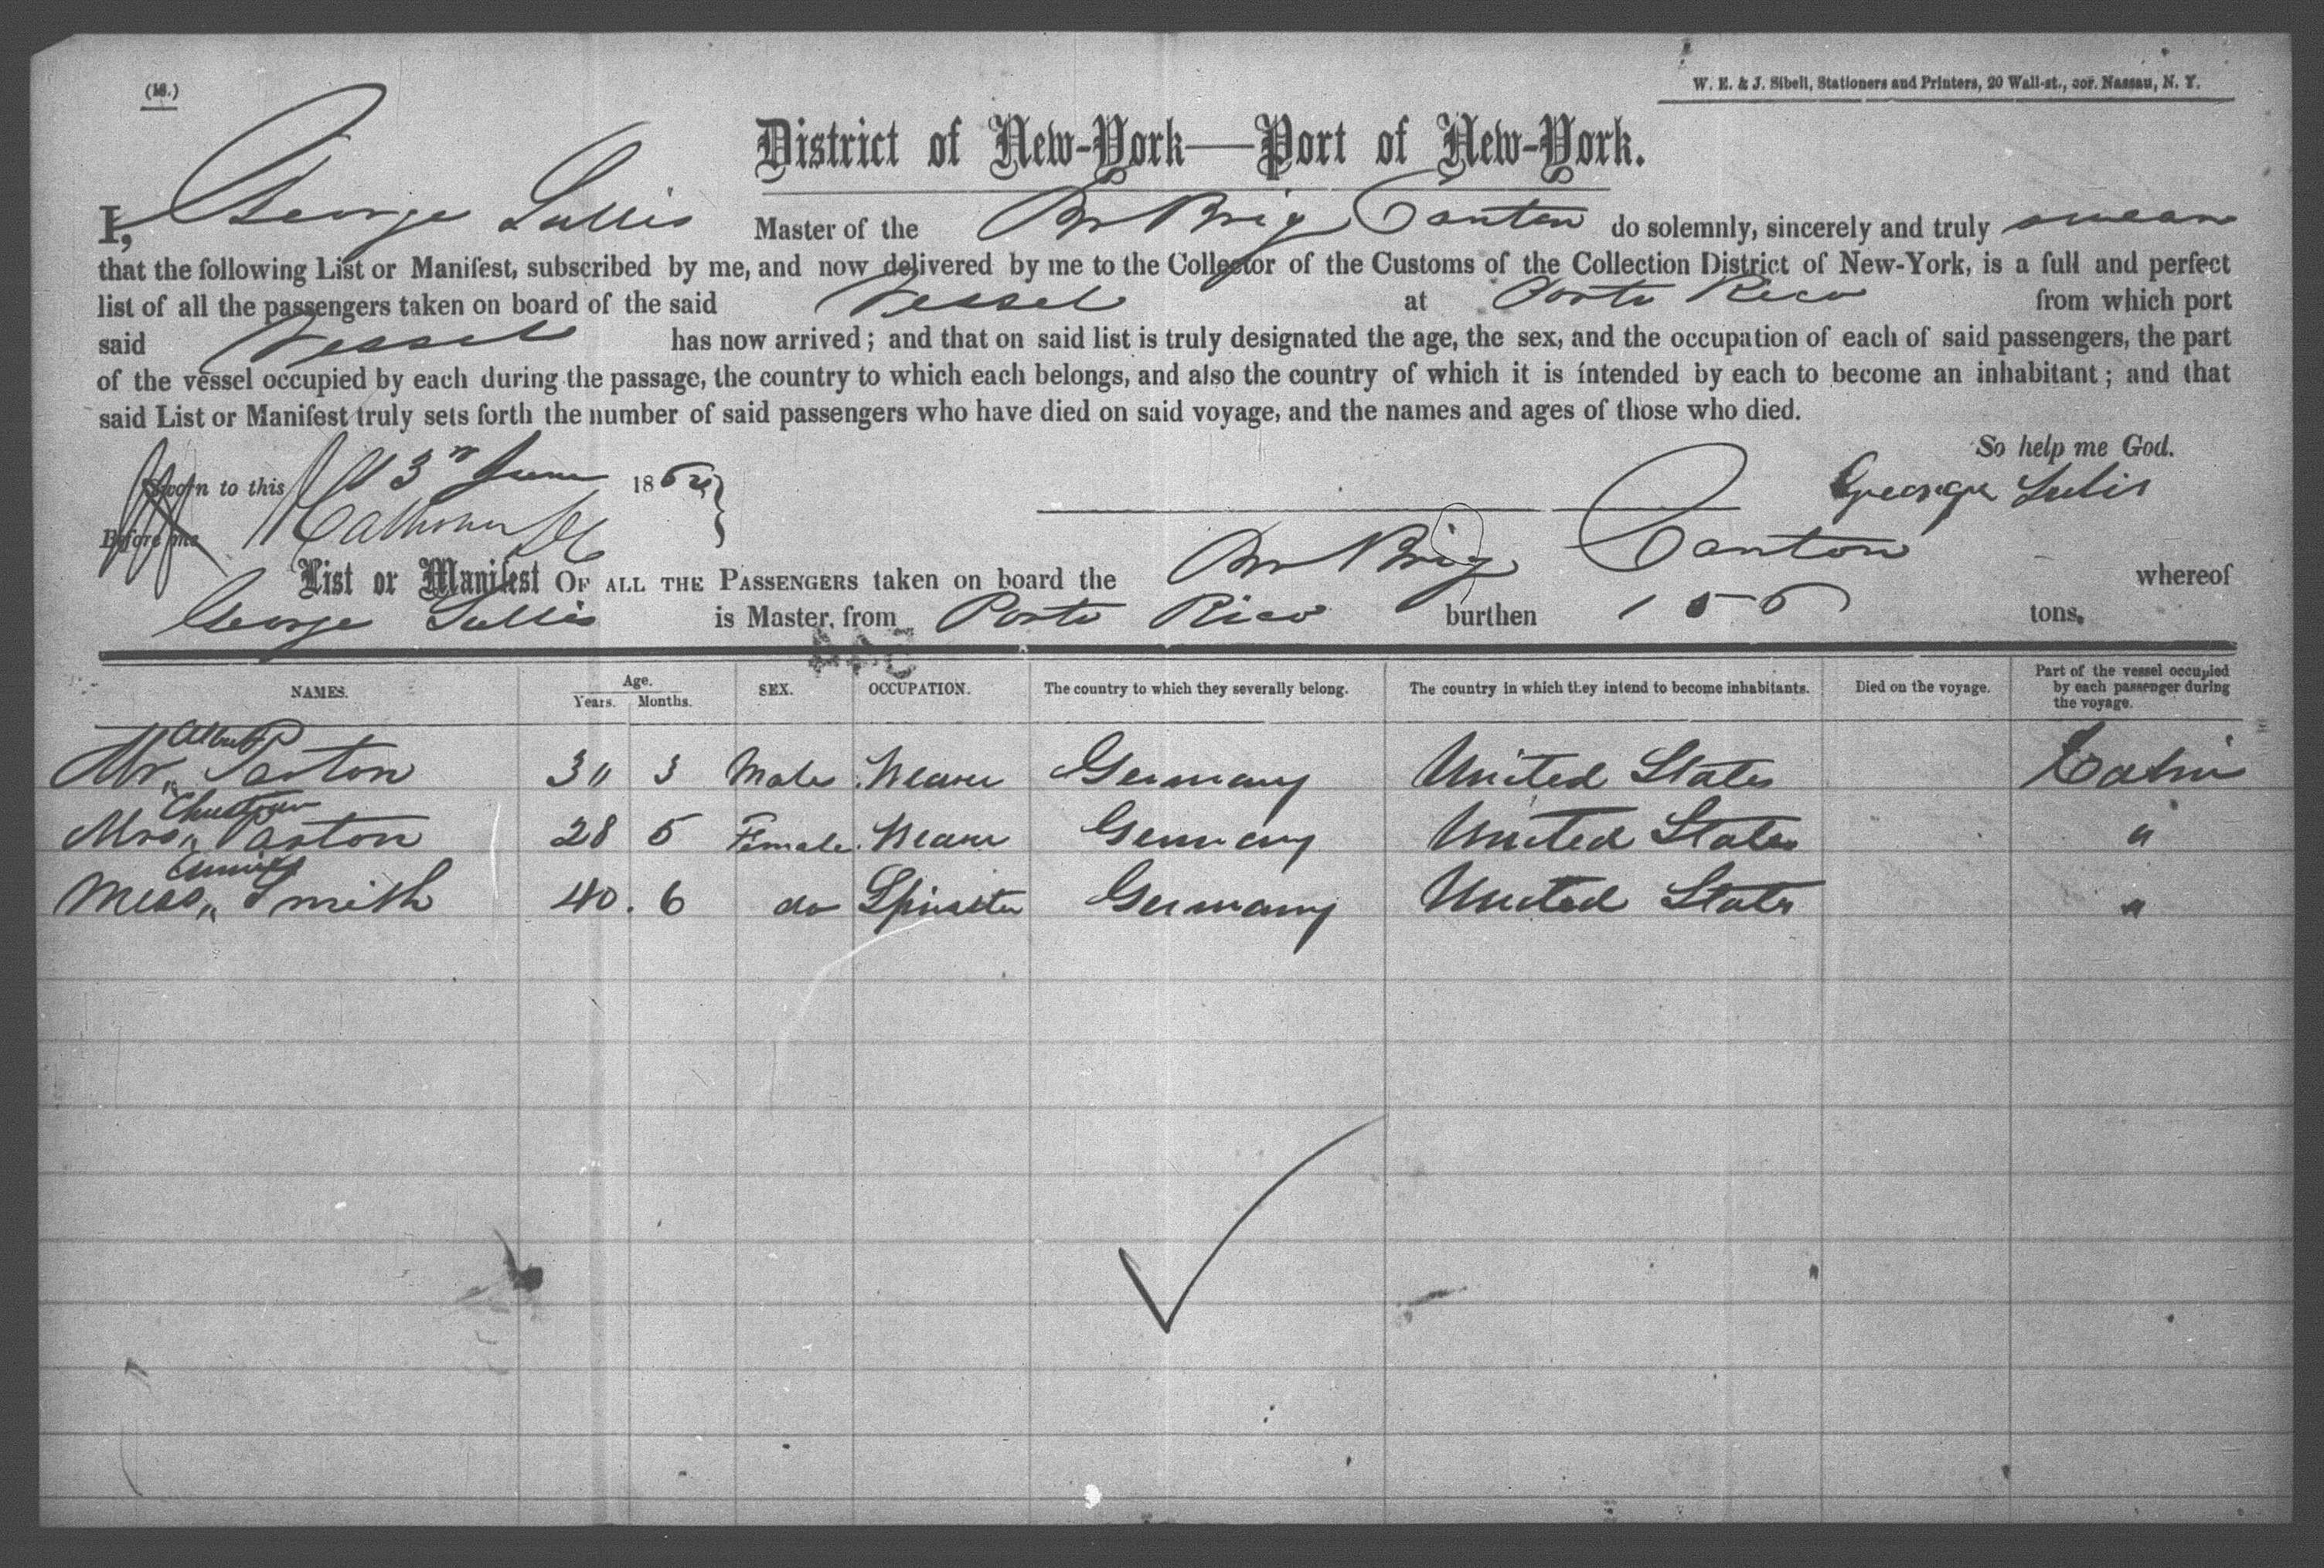 (18.)
W. E. & J. Sibell, Stationers and Printers, 20 Wall-st., cor. Nassau, N. Y.
District of New-York—Port of New-York.
I, George Sullis Master of the Br Brig Canton do solemnly, sincerely and truly swear
that the following List or Manifest, subscribed by me, and now delivered by me to the Collector of the Customs of the Collection District of New-York, is a full and perfect
list of all the passengers taken on board of the said Vessel at Porto Rico from which port
said Vessel has now arrived; and that on said list is truly designated the age, the sex, and the occupation of each of said passengers, the part
of the vessel occupied by each during the passage, the country to which each belongs, and also the country of which it is intended by each to become an inhabitant; and that
said List or Manifest truly sets forth the number of said passengers who have died on said voyage, and the names and ages of those who died.
So help me God.
Sworn to this 13 June 186
George Sulis
Before me
List or Manifest OF ALL THE PASSENGERS taken on board the Br Brig Canton whereof
George Sullis is Master, from Porto Rico burthen 156 tons.
NAMES. Age. Years. Months. SEX. OCCUPATION. The country to which they severally belong. The country in which they intend to become inhabitants. Died on the voyage. Part of the vessel occupied by each passenger during the voyage.
Albert
Mr. " Paston 3" 3 Male Weaver Germany United States Cabin
Mrs " Paston 28 5 Female Weaver Germany United States "
Miss " Smith 40. 6 do Spinster Germany United States "